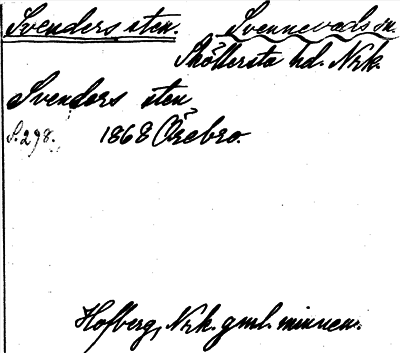 Svenders sten. Svennevads sn.
Sköllersta hd. Nrk.
Svenders sten
S. 298. 1868 Örebro.
Hofberg, Nrk. gml. minnen.